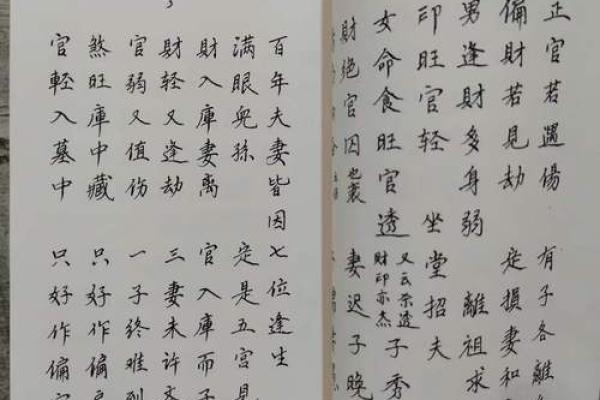 正官若遇傷 有子各離
偏財若見劫 定損妻和
男逢財多身弱 離祖求
印旺官轻 坐堂招夫
女命食旺官透 又云杀透 財印亦杰 子秀
財絕官囚 也衰 妻迟子晚
百年夫妻皆因七位逢生
满眼兒孫 定是五宫見
財入庫妻離 官入庫而子
財轻又逢劫 三妻未許
官弱又值伤 一子终难到
煞旺庫中藏 只好作偏
官輕入墓中 只好作偏